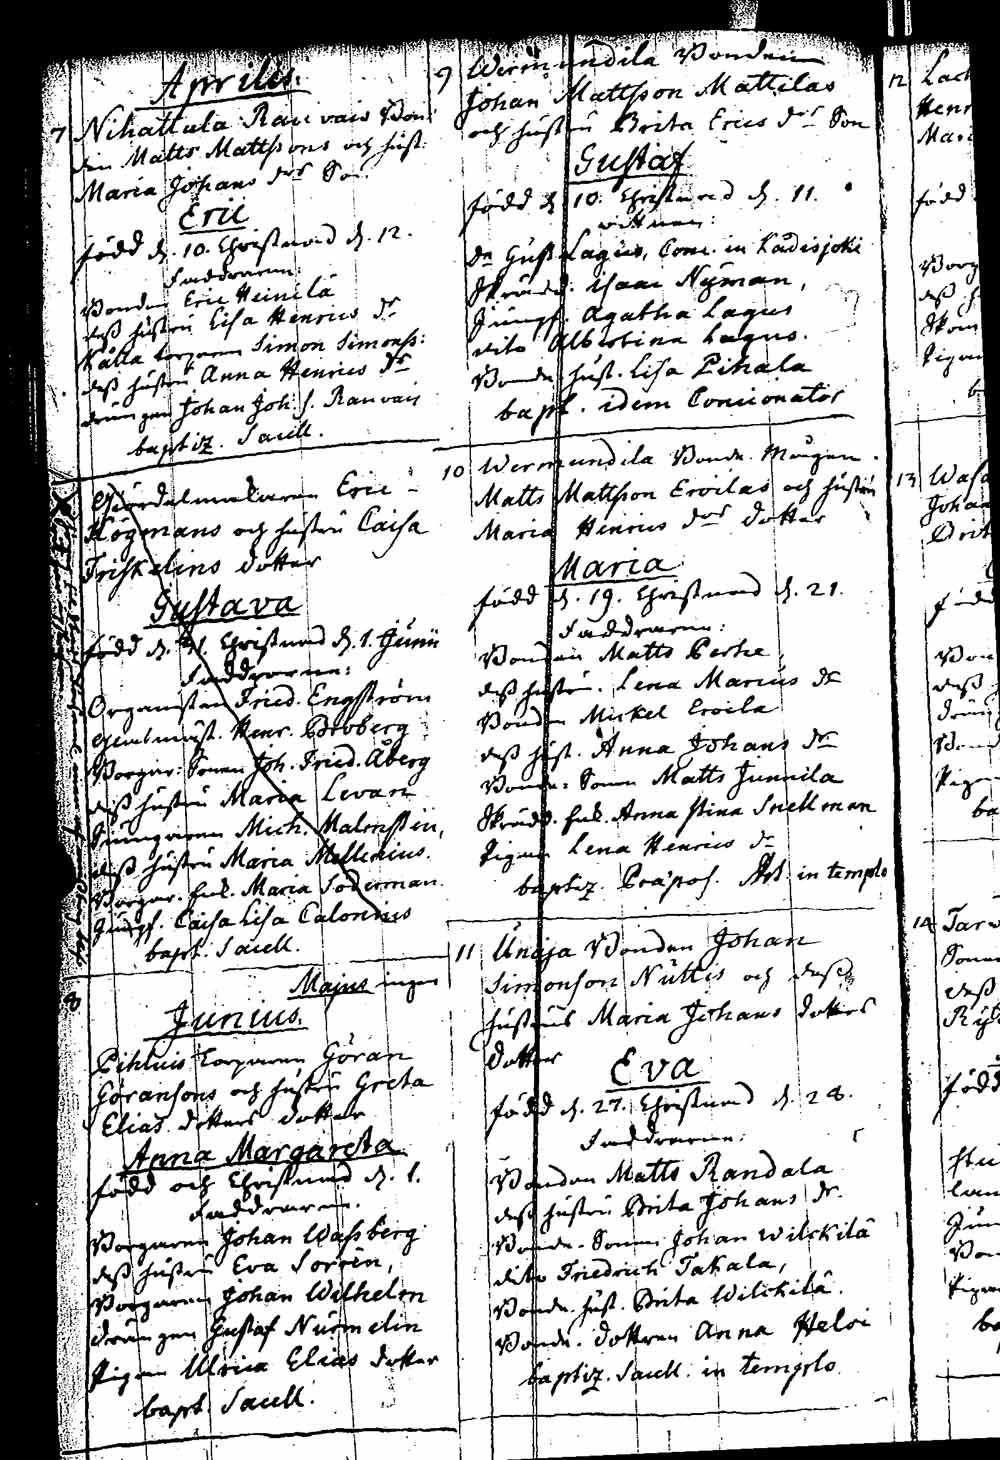 Aprilis.
7 Nihattula Rauvais Bon-
den Matts Mattssons och hust.
Maria Johans dr Son
Eric
född d. 10. Christnad d. 12.
Faddrarne:
Bonden Eric Heinilä
dess hustru Lisa Henrics dr
torparen Simon Simonss:
dess hustru Anna Henrics dr
drängen Johan Joh. s. Rauvais
baptiz. Sacell.
Eric
Högmans och hustru Caisa
Friskelins dotter
Gustava
född d. 31. Christnad d. 1. Junii
Faddrarne:
Organisten Fried. Engström
Henr. Broberg
Borgar: Sonen Joh. Fried. Åberg
dess hustru Maria Levan
Mich. Malmsten,
dess hustru Maria Mellenius.
Borgar. Maria Söderman.
Jungf. Caisa Lisa Calonius
bapt. Sacell.
Majus ingen
8
Junius.
Torparen Göran
Göransons och hustru Greta
Elias dotters dotter
Anna Margareta
född och Christnad d. 1.
Faddrarne.
Borgaren Johan Wassberg
dess hustru Eva Sorrèn,
Borgaren Johan Wilhelm
drängen Gustaf Nurmelin
Pigan Ulrica Elias dotter
bapt. Sacell.
9 Wermundila Bonden
Johan Mattsson Mattilas
och hustru Brita Erics dr Son
Gustaf
född d. 10. Christnad d. 11.
vittnen:
Dn Gust. Lagus, Conc. in Kadisjoki
Skrädd. Isaac Nyman,
Jungf. Agatha Lagus
dito Albertina Lagus.
Bonde hust. Lisa Pihala
bapt. idem Concionator
10 Wermundila Bonde.
Matts Mattsson Eroilas och hustru
Maria Henrics drs dotter
Maria
född d. 19. Christnad d. 21.
Faddrarne:
Bonden Matts Perhe,
dess hustru. Lena Marcus dr
Bonden Mickel Eroila
dess hust. Anna Johans dr
Bonde-Sonen Matts Junnila
Skrädd. Anna Stina Snellman
Pigan Lena Henrics dr
baptiz. Præpos. in templo
11 Unaja Bonden Johan
Simonson Nuttis och dess
hustrus Maria Johans dotters
dotter
Eva
född d. 27. Christnad d. 28.
Faddrarne:
Bonden Matts Randala
dess hustru Brita Johans dr.
Bonde-Sonen Johan Wilckilä
dito Friedrich Takala,
Bonde. hust. Brita Wilckilä.
Bonde. dottren Anna Heloi
baptiz. Sacell. in templo
12
född
13
Johan
Brit
född
14
Sonen
dess
född